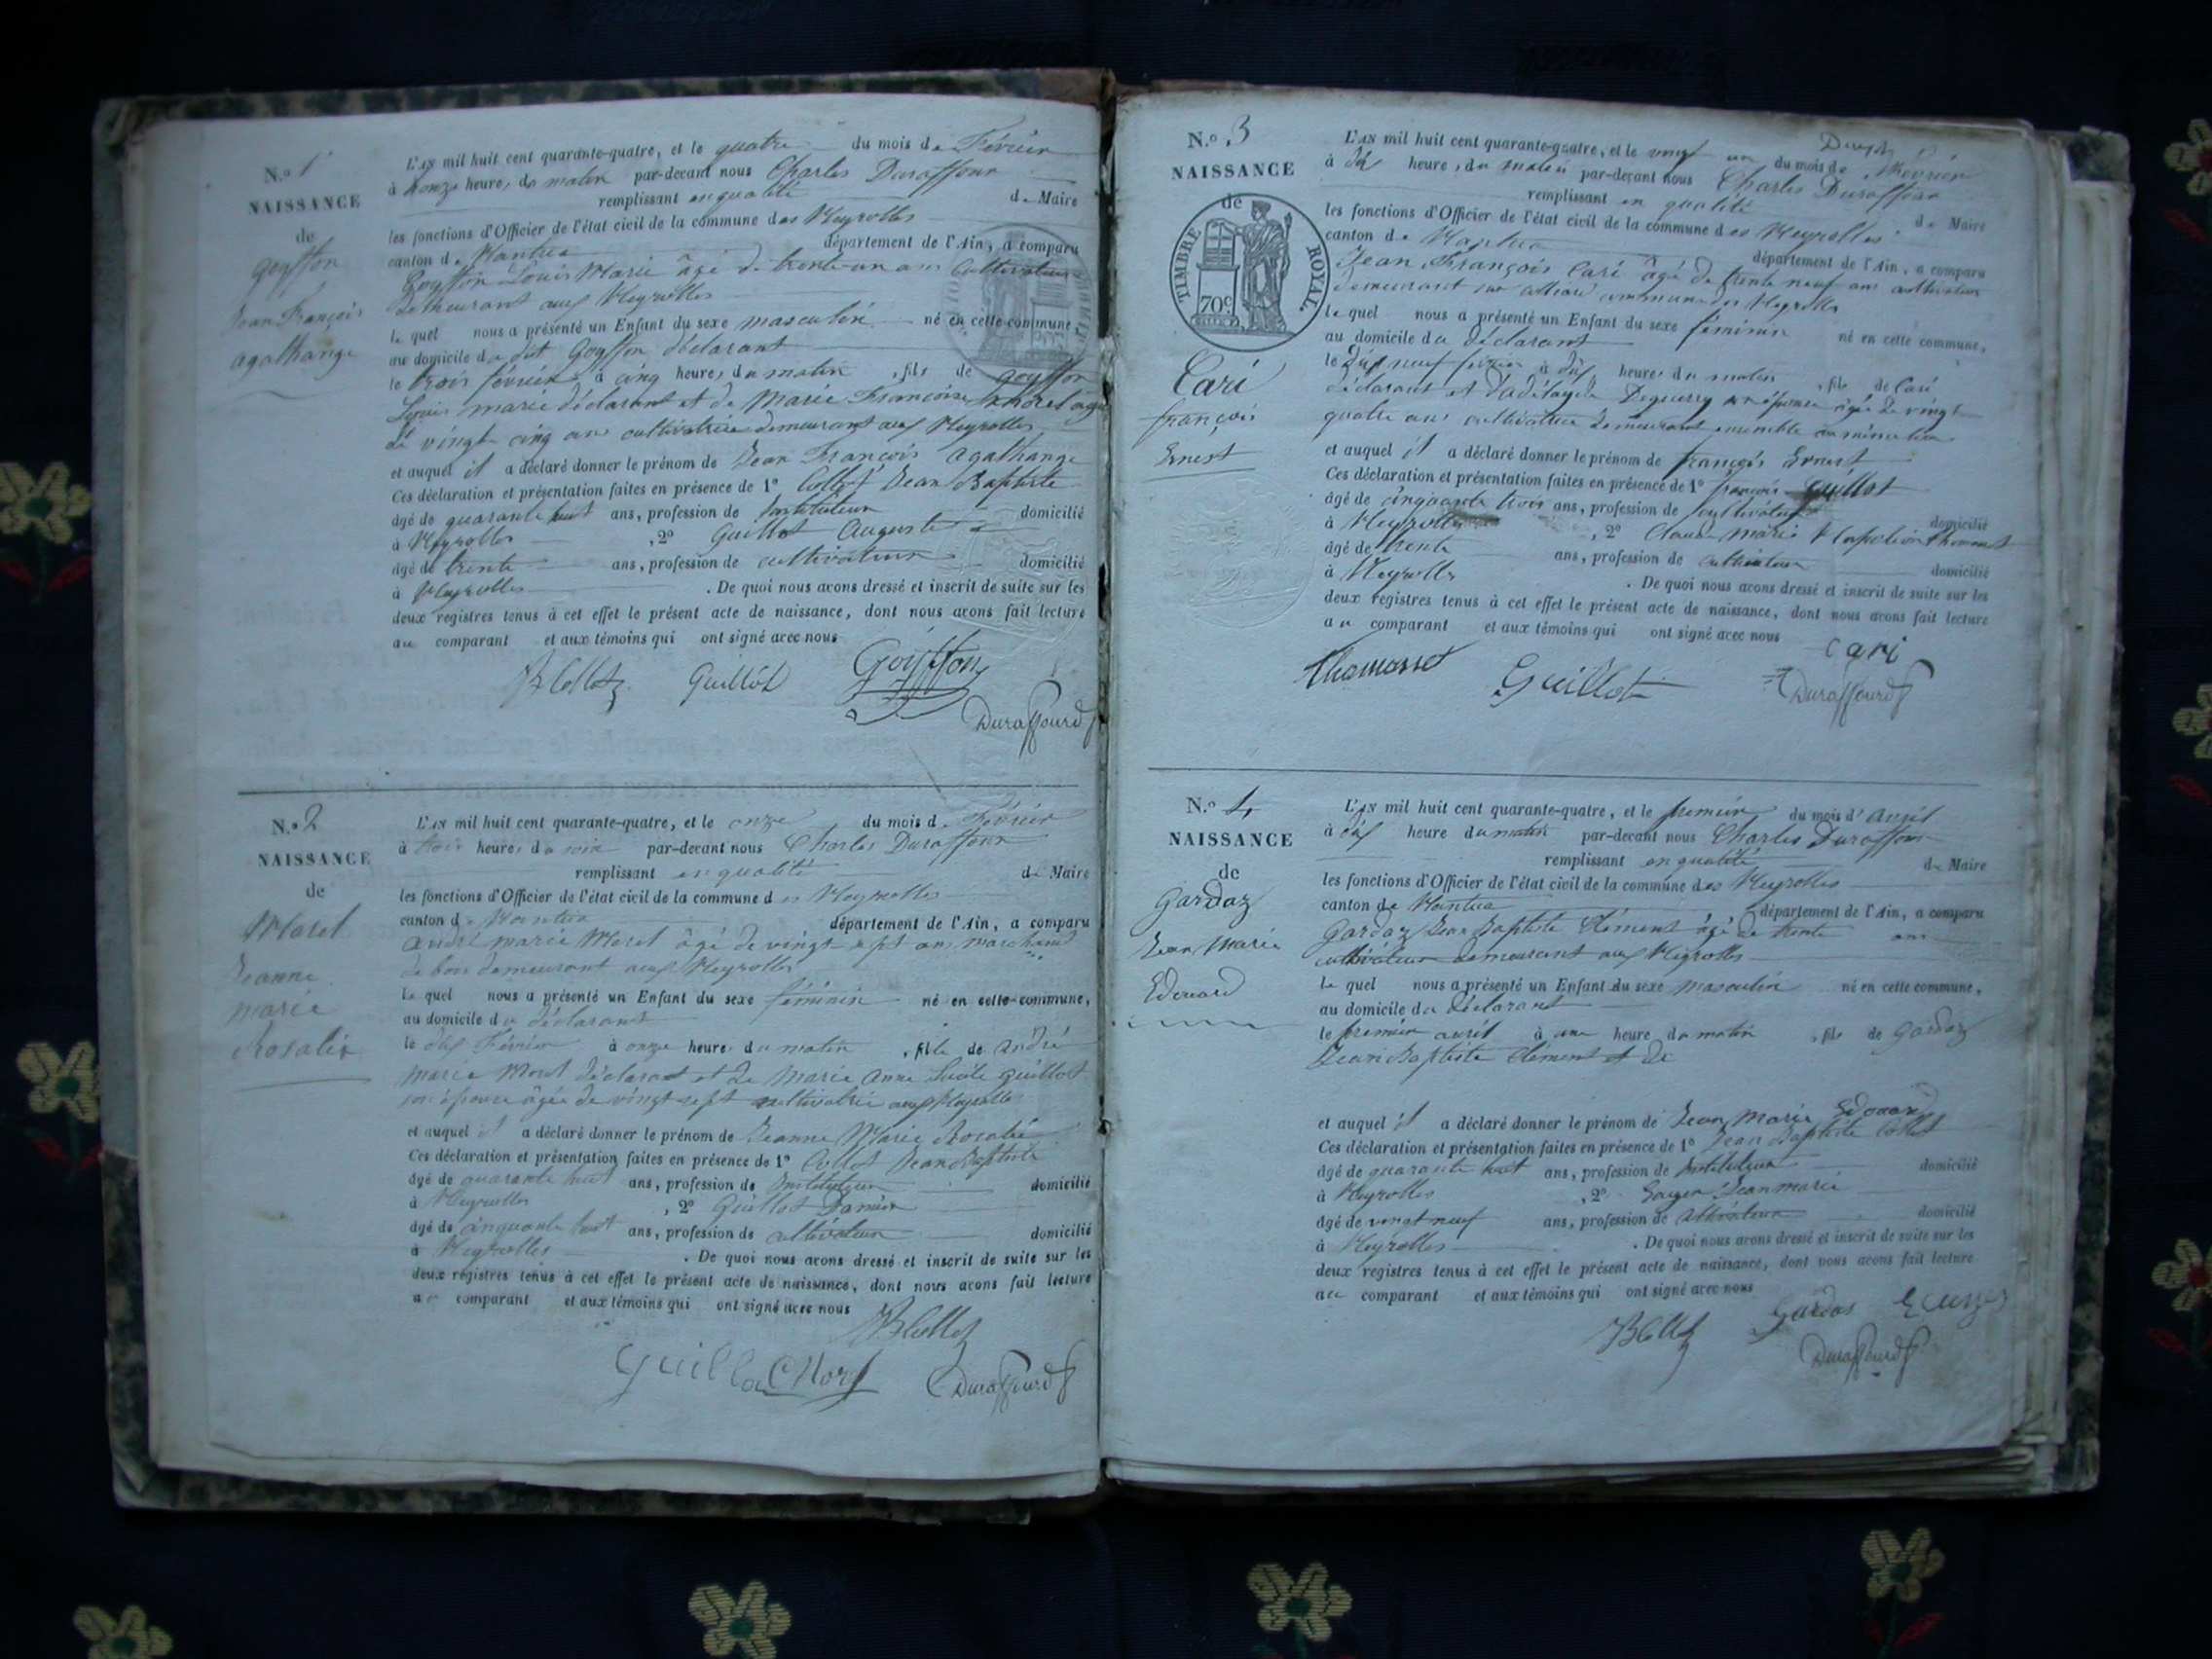 N.º 1
NAISSANCE
de
Goyffon
Jean François
Agathange
L'AN mil huit cent quarante-quatre, et le quatre du mois de Février
à honze heures du matin par-devant nous Charles Duraffour
remplissant en qualité de Maire
les fonctions d'Officier de l'état civil de la commune des Neyrolles
canton de Nantua département de l'Ain, a comparu
Goyffon Louis Marie âgé de trente un ans cultivateur
demeurant aux Neyrolles
le quel nous a présenté un Enfant du sexe masculin né en cette commune,
au domicile du dit Goyffon déclarant
le trois février à cinq heures du matin, fils de Goyffon
Louis marie déclarant et de Marie Françoise âgée
de vingt cinq ans cultivatrice demeurant aux Neyrolles
et auquel il a déclaré donner le prénom de Jean François Agathange
Ces déclaration et présentation faites en présence de 1º Collet Jean Baptiste
âgé de quarante huit ans, profession de Instituteur domicilié
à Neyrolles, 2º Guillot Auguste
âgé de trente ans, profession de cultivateur domicilié
à Neyrolles. De quoi nous avons dressé et inscrit de suite sur les
deux registres tenus à cet effet le présent acte de naissance, dont nous avons fait lecture
au comparant et aux témoins qui ont signé avec nous
JB Collet Guillot Goyffon
Duraffourd
N.º 2
NAISSANCE
de
Moret
Jeanne
marie
Rosalie
L'AN mil huit cent quarante-quatre, et le onze du mois de Février
à trois heures du soir par-devant nous Charles Duraffour
remplissant en qualité de Maire
les fonctions d'Officier de l'état civil de la commune des Neyrolles
canton de Nantua département de l'Ain, a comparu
André marie Moret âgé de vingt sept ans marchand
de bois demeurant aux Neyrolles
le quel nous a présenté un Enfant du sexe féminin né en cette commune,
au domicile du déclarant
le dix Février à onze heures du matin, fille de André
marie Moret déclarant et de Marie Anne Lucile Guillot
son épouse âgée de vingt sept cultivatrice aux Neyrolles
et auquel il a déclaré donner le prénom de Jeanne Marie Rosalie
Ces déclaration et présentation faites en présence de 1º Collet Jean Baptiste
âgé de quarante huit ans, profession de Instituteur domicilié
à Neyrolles, 2º Guillot Damien
âgé de cinquante huit ans, profession de cultivateur domicilié
à Neyrolles. De quoi nous avons dressé et inscrit de suite sur les
deux registres tenus à cet effet le présent acte de naissance, dont nous avons fait lecture
au comparant et aux témoins qui ont signé avec nous
JB Collet
Guillot Moret Duraffourd
N.º 3
NAISSANCE
de
TIMBRE ROYAL
70c
Cari
françois
Ernest
L'AN mil huit cent quarante-quatre, et le vingt un du mois de Février
à dix heures du matin par-devant nous Charles Duraffour
remplissant en qualité de Maire
les fonctions d'Officier de l'état civil de la commune des Neyrolles
canton de Nantua département de l'Ain, a comparu
Jean François Cari âgé de trente neuf ans cultivateur
demeurant commune des Neyrolles
le quel nous a présenté un Enfant du sexe féminin né en cette commune,
au domicile du déclarant
le dix neuf février à dix heures du matin, fils de Cari
déclarant et d'adélayde son épouse âgée de vingt
quatre ans cultivatrice demeurant ensemble
et auquel il a déclaré donner le prénom de françois Ernest
Ces déclaration et présentation faites en présence de 1º françois Guillot
âgé de cinquante trois ans, profession de cultivateur domicilié
à Neyrolles, 2º Claude Marie Napoléon Thomasset
âgé de trente ans, profession de cultivateur domicilié
à Neyrolles. De quoi nous avons dressé et inscrit de suite sur les
deux registres tenus à cet effet le présent acte de naissance, dont nous avons fait lecture
au comparant et aux témoins qui ont signé avec nous Cari
Thomasset Guillot Duraffourd
N.º 4
NAISSANCE
de
Gardaz
Jean Marie
Edouard
L'AN mil huit cent quarante-quatre, et le premier du mois d'avril
à dix heure du matin par-devant nous Charles Duraffour
remplissant en qualité de Maire
les fonctions d'Officier de l'état civil de la commune des Neyrolles
canton de Nantua département de l'Ain, a comparu
Gardaz Jean Baptiste Clément âgé de trente ans
cultivateur demeurant aux Neyrolles
le quel nous a présenté un Enfant du sexe masculin né en cette commune,
au domicile du déclarant
le premier avril à une heure du matin, fils de Gardaz
Jean Baptiste Clément et de
et auquel il a déclaré donner le prénom de Jean Marie Edouard
Ces déclaration et présentation faites en présence de 1º Jean Baptiste Collet
âgé de quarante huit ans, profession de Instituteur domicilié
à Neyrolles, 2º Jean marie
âgé de vingt neuf ans, profession de cultivateur domicilié
à Neyrolles. De quoi nous avons dressé et inscrit de suite sur les
deux registres tenus à cet effet le présent acte de naissance, dont nous avons fait lecture
au comparant et aux témoins qui ont signé avec nous
JB Collet Gardas
Duraffourd